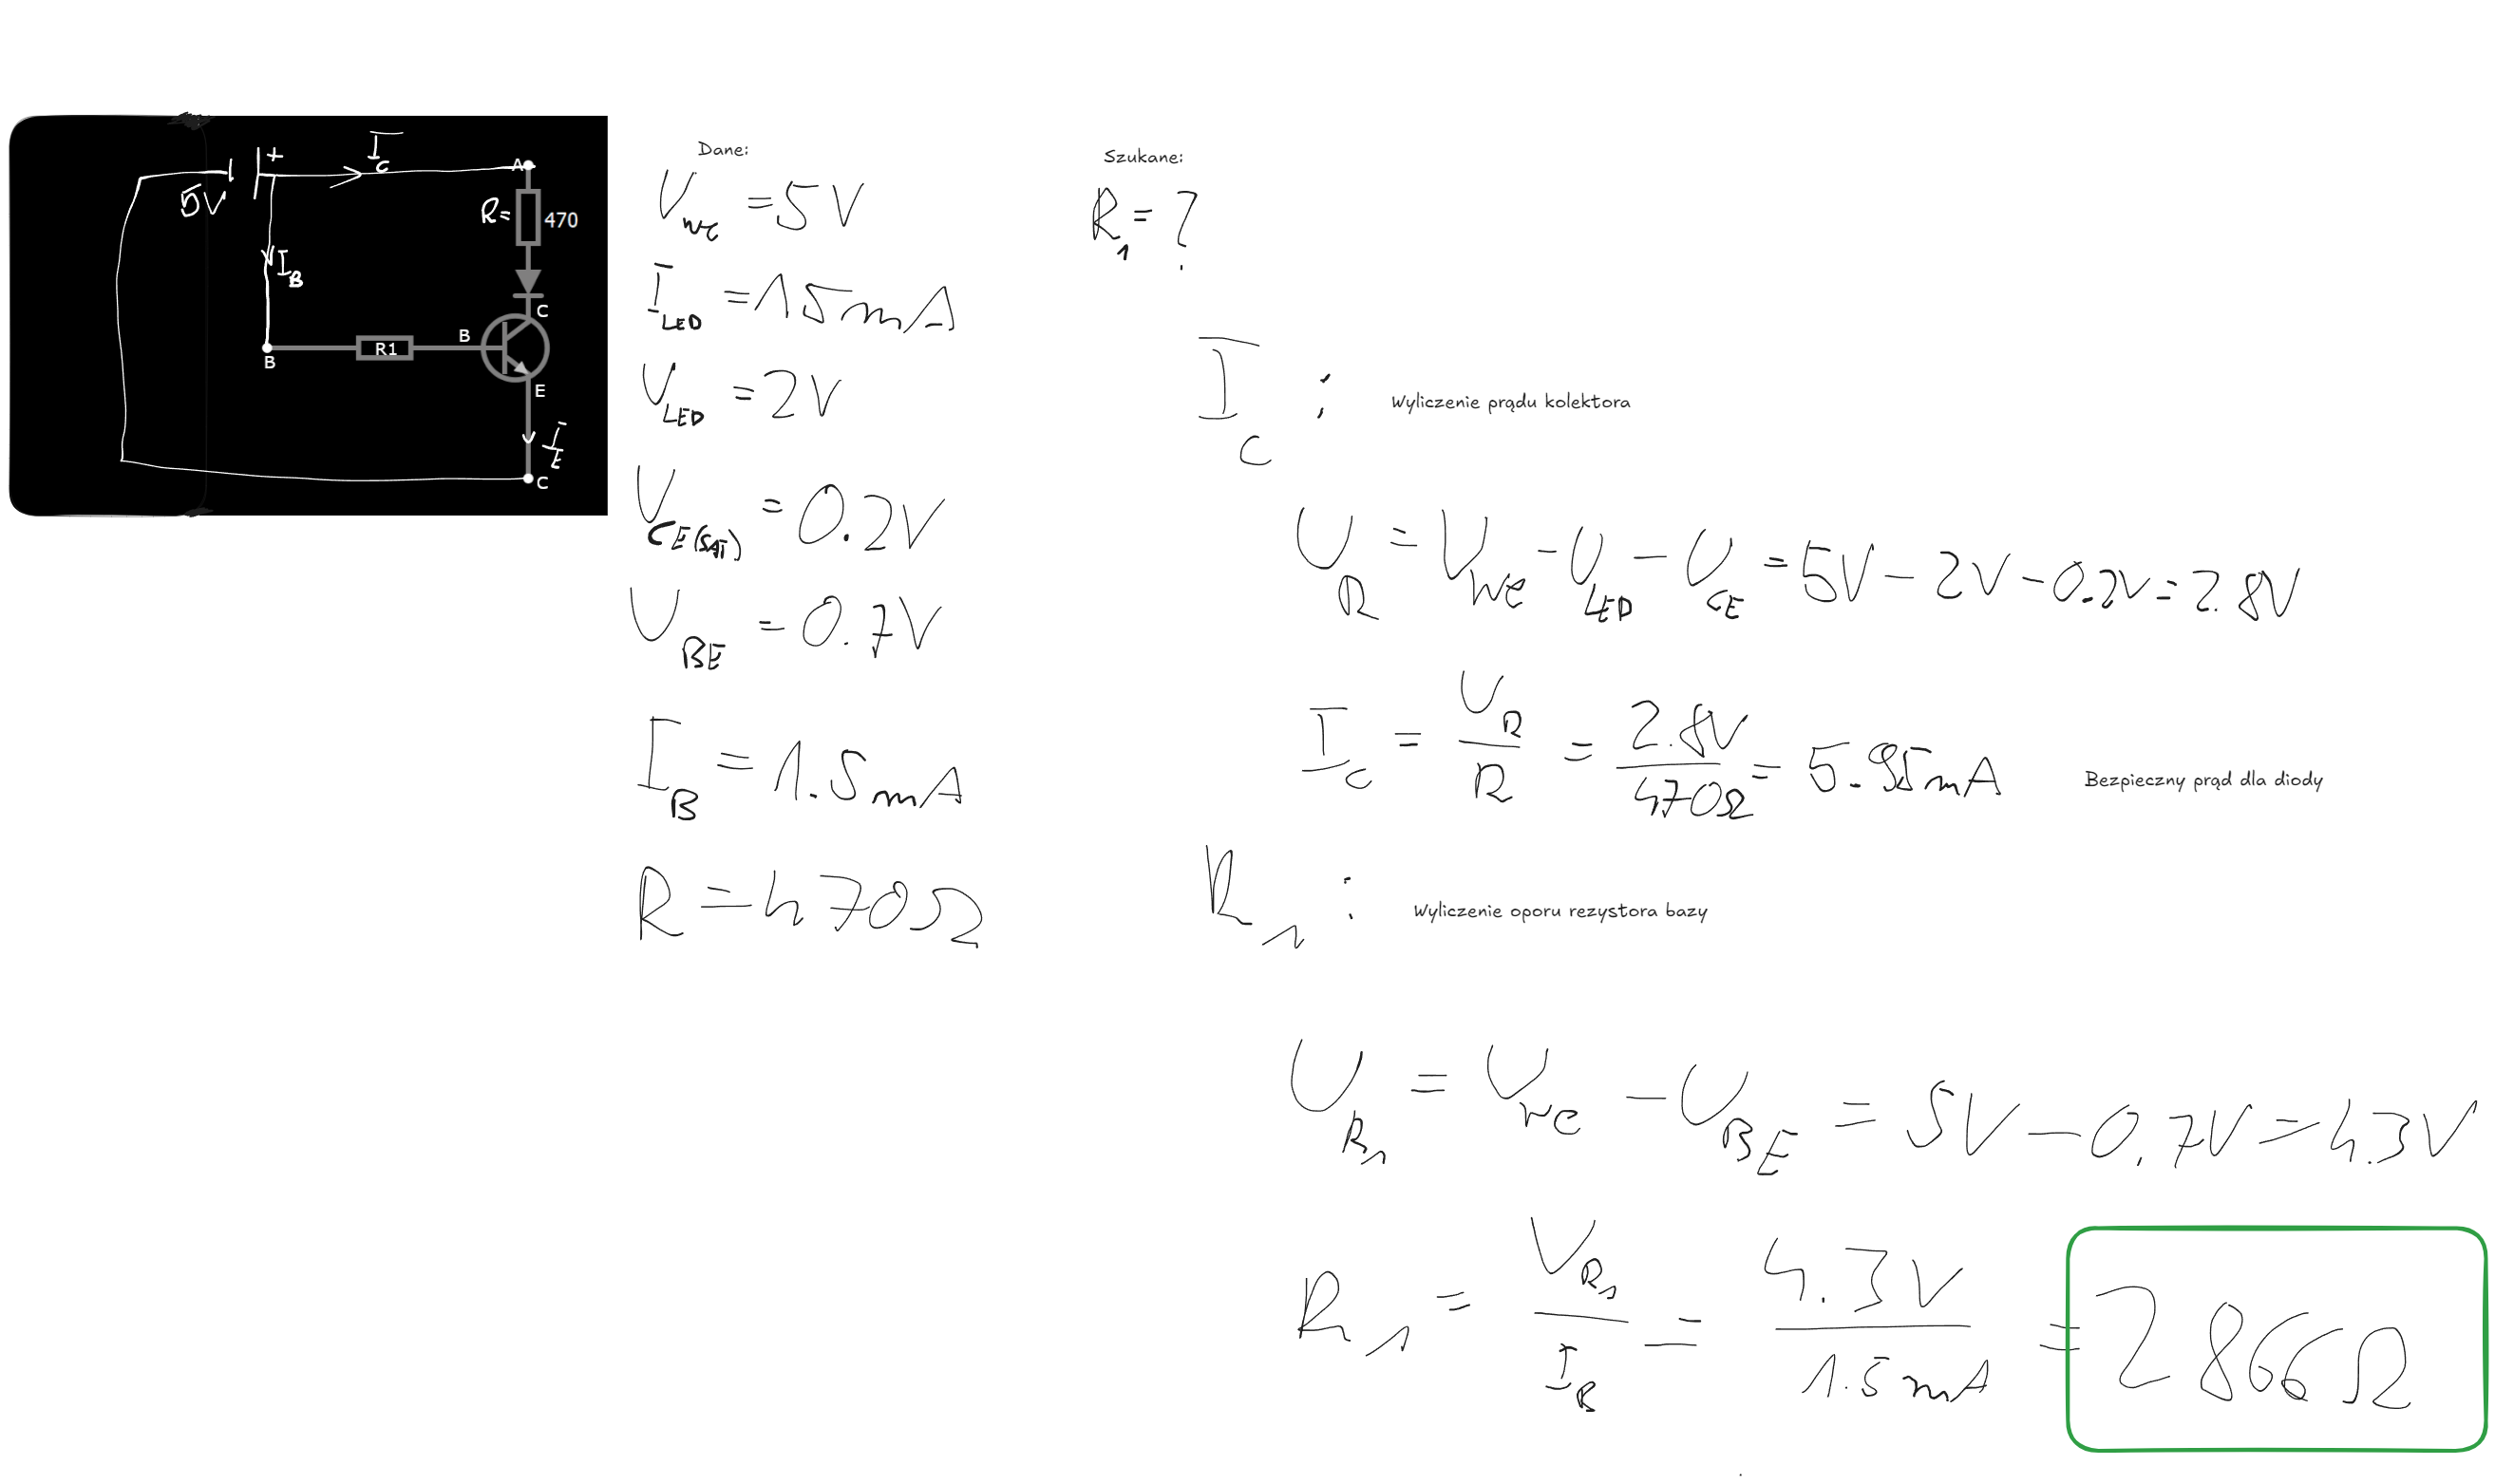 I_C
+
5V
A
R=
470
I_B
C
B
R1
B
E
I_E
C
Dane:
U_we = 5V
I_LED = 15mA
U_LED = 2V
U_CE(SAT) = 0.2V
U_BE = 0.7V
I_B = 1.5mA
R = 470Ω
Szukane:
R_1 = ?
I_C : Wyliczenie prądu kolektora
U_R = U_we - U_LED - U_CE = 5V - 2V - 0.2V = 2.8V
I_C = U_R / R = 2.8V / 470Ω = 5.95mA Bezpieczny prąd dla diody
R_1 : Wyliczenie oporu rezystora bazy
U_R1 = U_we - U_BE = 5V - 0.7V = 4.3V
R_1 = U_R1 / I_B = 4.3V / 1.5mA = 2866Ω